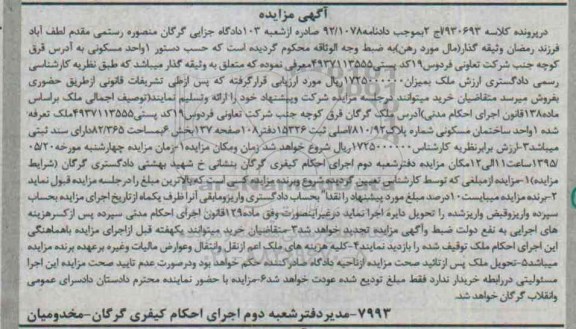 آگهی مزایده
درپرونده کلاسه ۹۳۰۶۹۳/ج ۲بموجب دادنامه۹۲/۱۰۷۸ صادره ازشعبه ۱۰۳دادگاه جزایی گرگان منصوره رستمی مقدم لطف آباد
فرزند رمضان وثیقه گذار(مال مورد رهن)به ضبط وجه الوثاقه محکوم گردیده است که حسب دستور ۱واحد مسکونی به آدرس قرق
کوچه جنب شرکت تعاونی فردوس۱۹کد پستی۴۹۳۷۱۱۳۵۵۵معرفی نموده که متعلق به وثیقه گذار میباشد که طبق نظریه کارشناسی
رسمی دادگستری ارزش ملک بمیزان۱۷۲۵۰۰۰۰۰۰ریال مورد ارزیابی قرارگرفته که پس ازطی تشریفات قانونی ازطریق حضوری
بفروش میرسد متقاضیان خرید میتوانند درجلسه مزایده شرکت وپیشنهاد خود را ارائه وتسلیم نمایند(توصیف اجمالی ملک براساس
ماده۱۳۸قانون اجرای احکام مدنی)آدرس ملک گرگان قرق کوچه جنب شرکت تعاونی فردوس۱۹کد پستی۴۹۳۷۱۱۳۵۵۵ملک تعرفه
شده ۱واحد ساختمان مسکونی شماره پلاک۸۱۰/۹۳اصلی ثبت ۱۵۳۲۶دفتر۱۰۸صفحه ۱۳۷بخش ۶بمساحت ۸۲/۳۶۵دارای سند ثبتی
میباشد۳-ارزش برابرنظریه کارشناس۱۷۲۵۰۰۰۰۰۰ریال شروع خواهد شد زمان ومکان مزایده۱-زمان مزایده چهارشنبه مورخه۰۵/۲۰
/۱۳۹۵ساعت۱۱الی۱۲مکان مزایده دفترشعبه دوم اجرای احکام کیفری گرگان بنشانی خ شهید بهشتی دادگستری گرگان (شرایط
مزایده)۱-مزایده ازمبلغی که توسط کارشناس تعیین گردیده شروع برنده مزایده کسی است که بالاترین مبلغ را درجلسه مزایده قبول نماید
۲-برنده مزایده میبایست ۱۰درصد مبلغ مورد پیشنهاد را نقدا" بحساب دادگستری واریزومابقی آنرا ظرف یکماه ازتاریخ اجرای مزایده بحساب
سپرده واریزوقبض واریزشده را تحویل دایره اجرا نماید درغیراینصورت وفق ماده۱۲۹قانون اجرای احکام مدنی سپرده پس ازکسرهزینه
های اجرایی به نفع دولت ضبط وآگهی مزایده تجدید خواهد شد۳-متقاضیان خرید میتوانند یکهفته قبل ازاجرای مزایده باهماهنگی
این اجرای احکام ملک توقیف شده را بازدید نمایند۴-کلیه هزینه های ملک اعم ازنقل وانتقال وعوارض مالیات وغیره برعهده برنده مزایده
میباشد۵-تحویل ملک پس ازتائید صحت مزایده ازناحیه دادگاه صادرکننده حکم خواهد بود ودرصورت عدم تایید صحت مزایده این اجرا
مسئولیتی دررابطه خریدار ندارد فقط مبلغ تودیع شده عودت خواهد شد۶-مزایده با حضور نماینده محترم دادستان دادسرای عمومی
وانقلاب گرگان خواهد شد.
۷۹۹۳-مدیردفترشعبه دوم اجرای احکام کیفری گرگان-مخدومیان